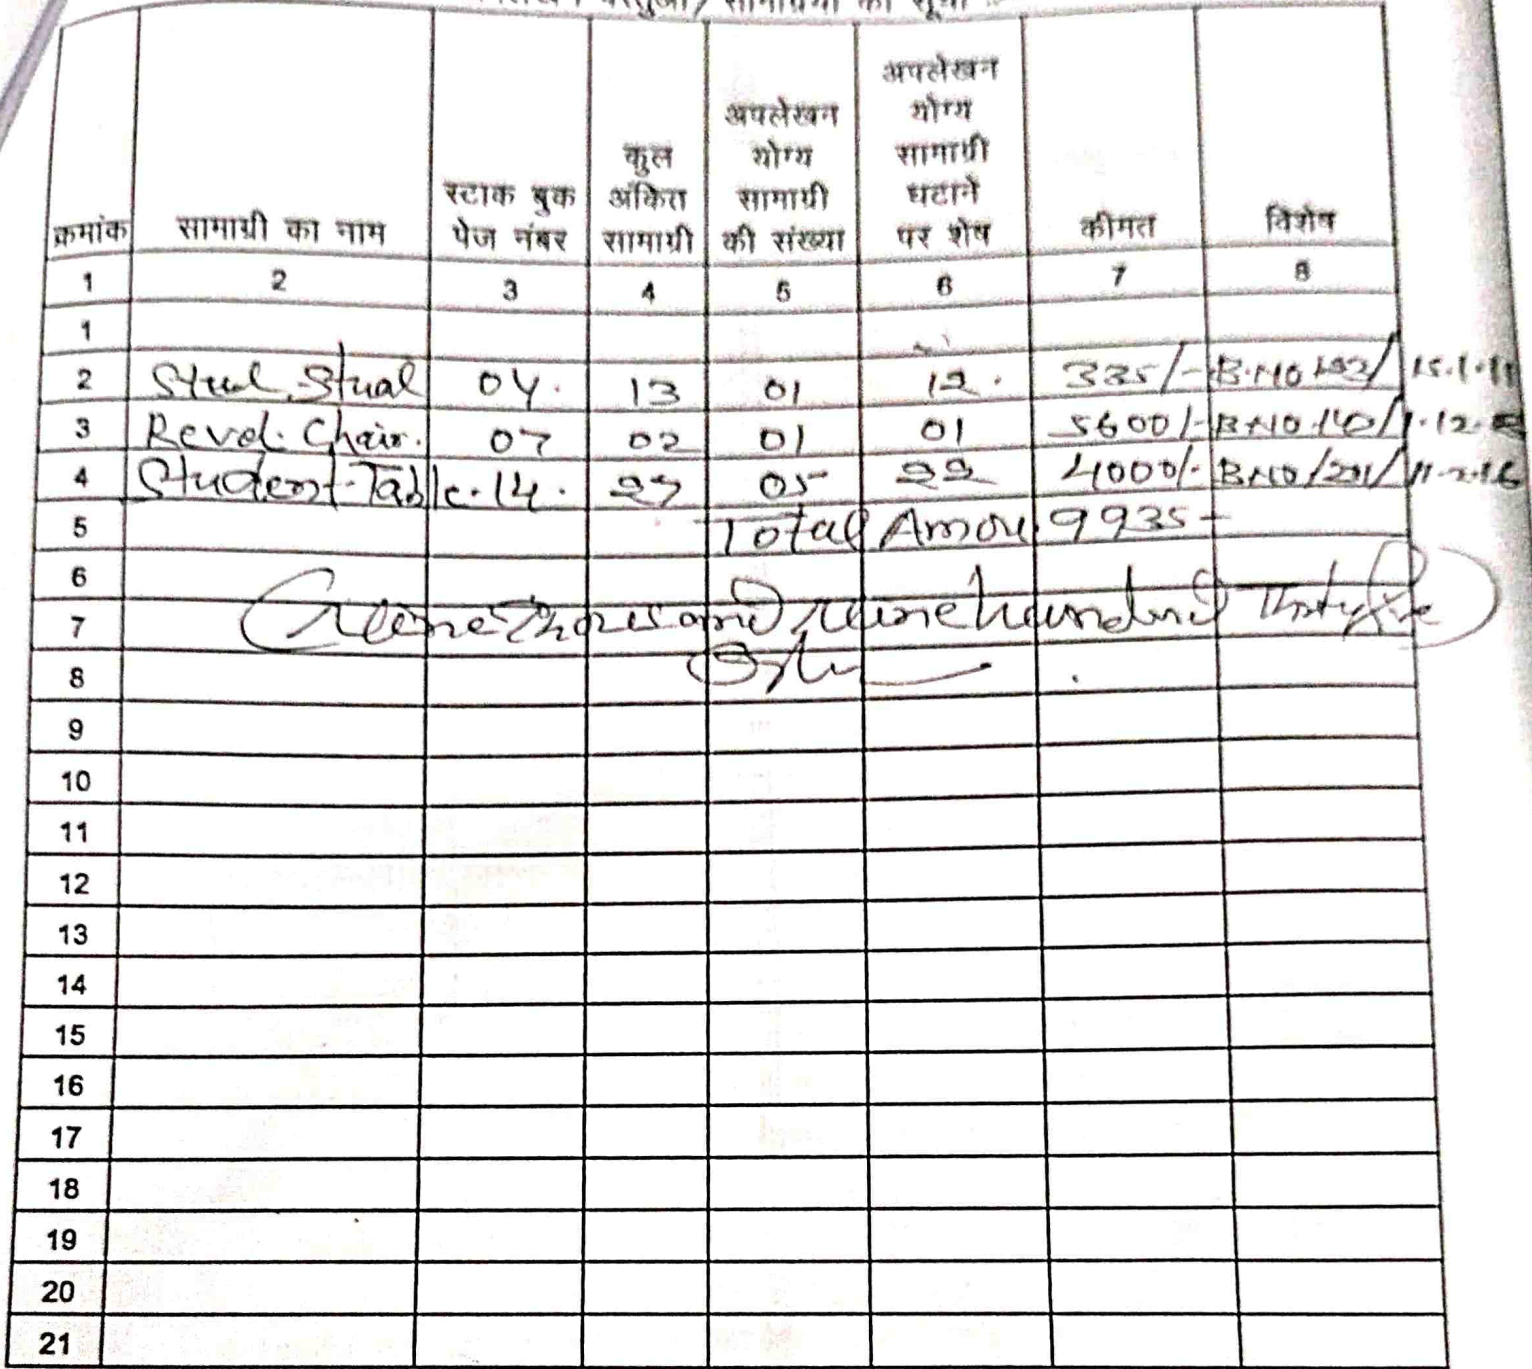 सामाग्रियों की सूची
क्रमांक सामाग्री का नाम स्टाक बुक पेज नंबर कुल अंकित सामाग्री अपलेखन योग्य सामाग्री की संख्या अपलेखन योग्य सामाग्री घटाने पर शेष कीमत विशेष
1 2 3 4 5 6 7 8
1
2 Steel Stual 04. 13 01 12. 335/- B.No 15.1.11
3 Revol. Chair. 07 02 01 01 5600/- B.No. 140/1.12.
4 Student Table. 14. 27 05 22 4000/- B.No/201/11.2.16
5 Total Amou 9935-
6
7 (Nine Thousand Nine hundred Thirty five)
8 Only
9
10
11
12
13
14
15
16
17
18
19
20
21